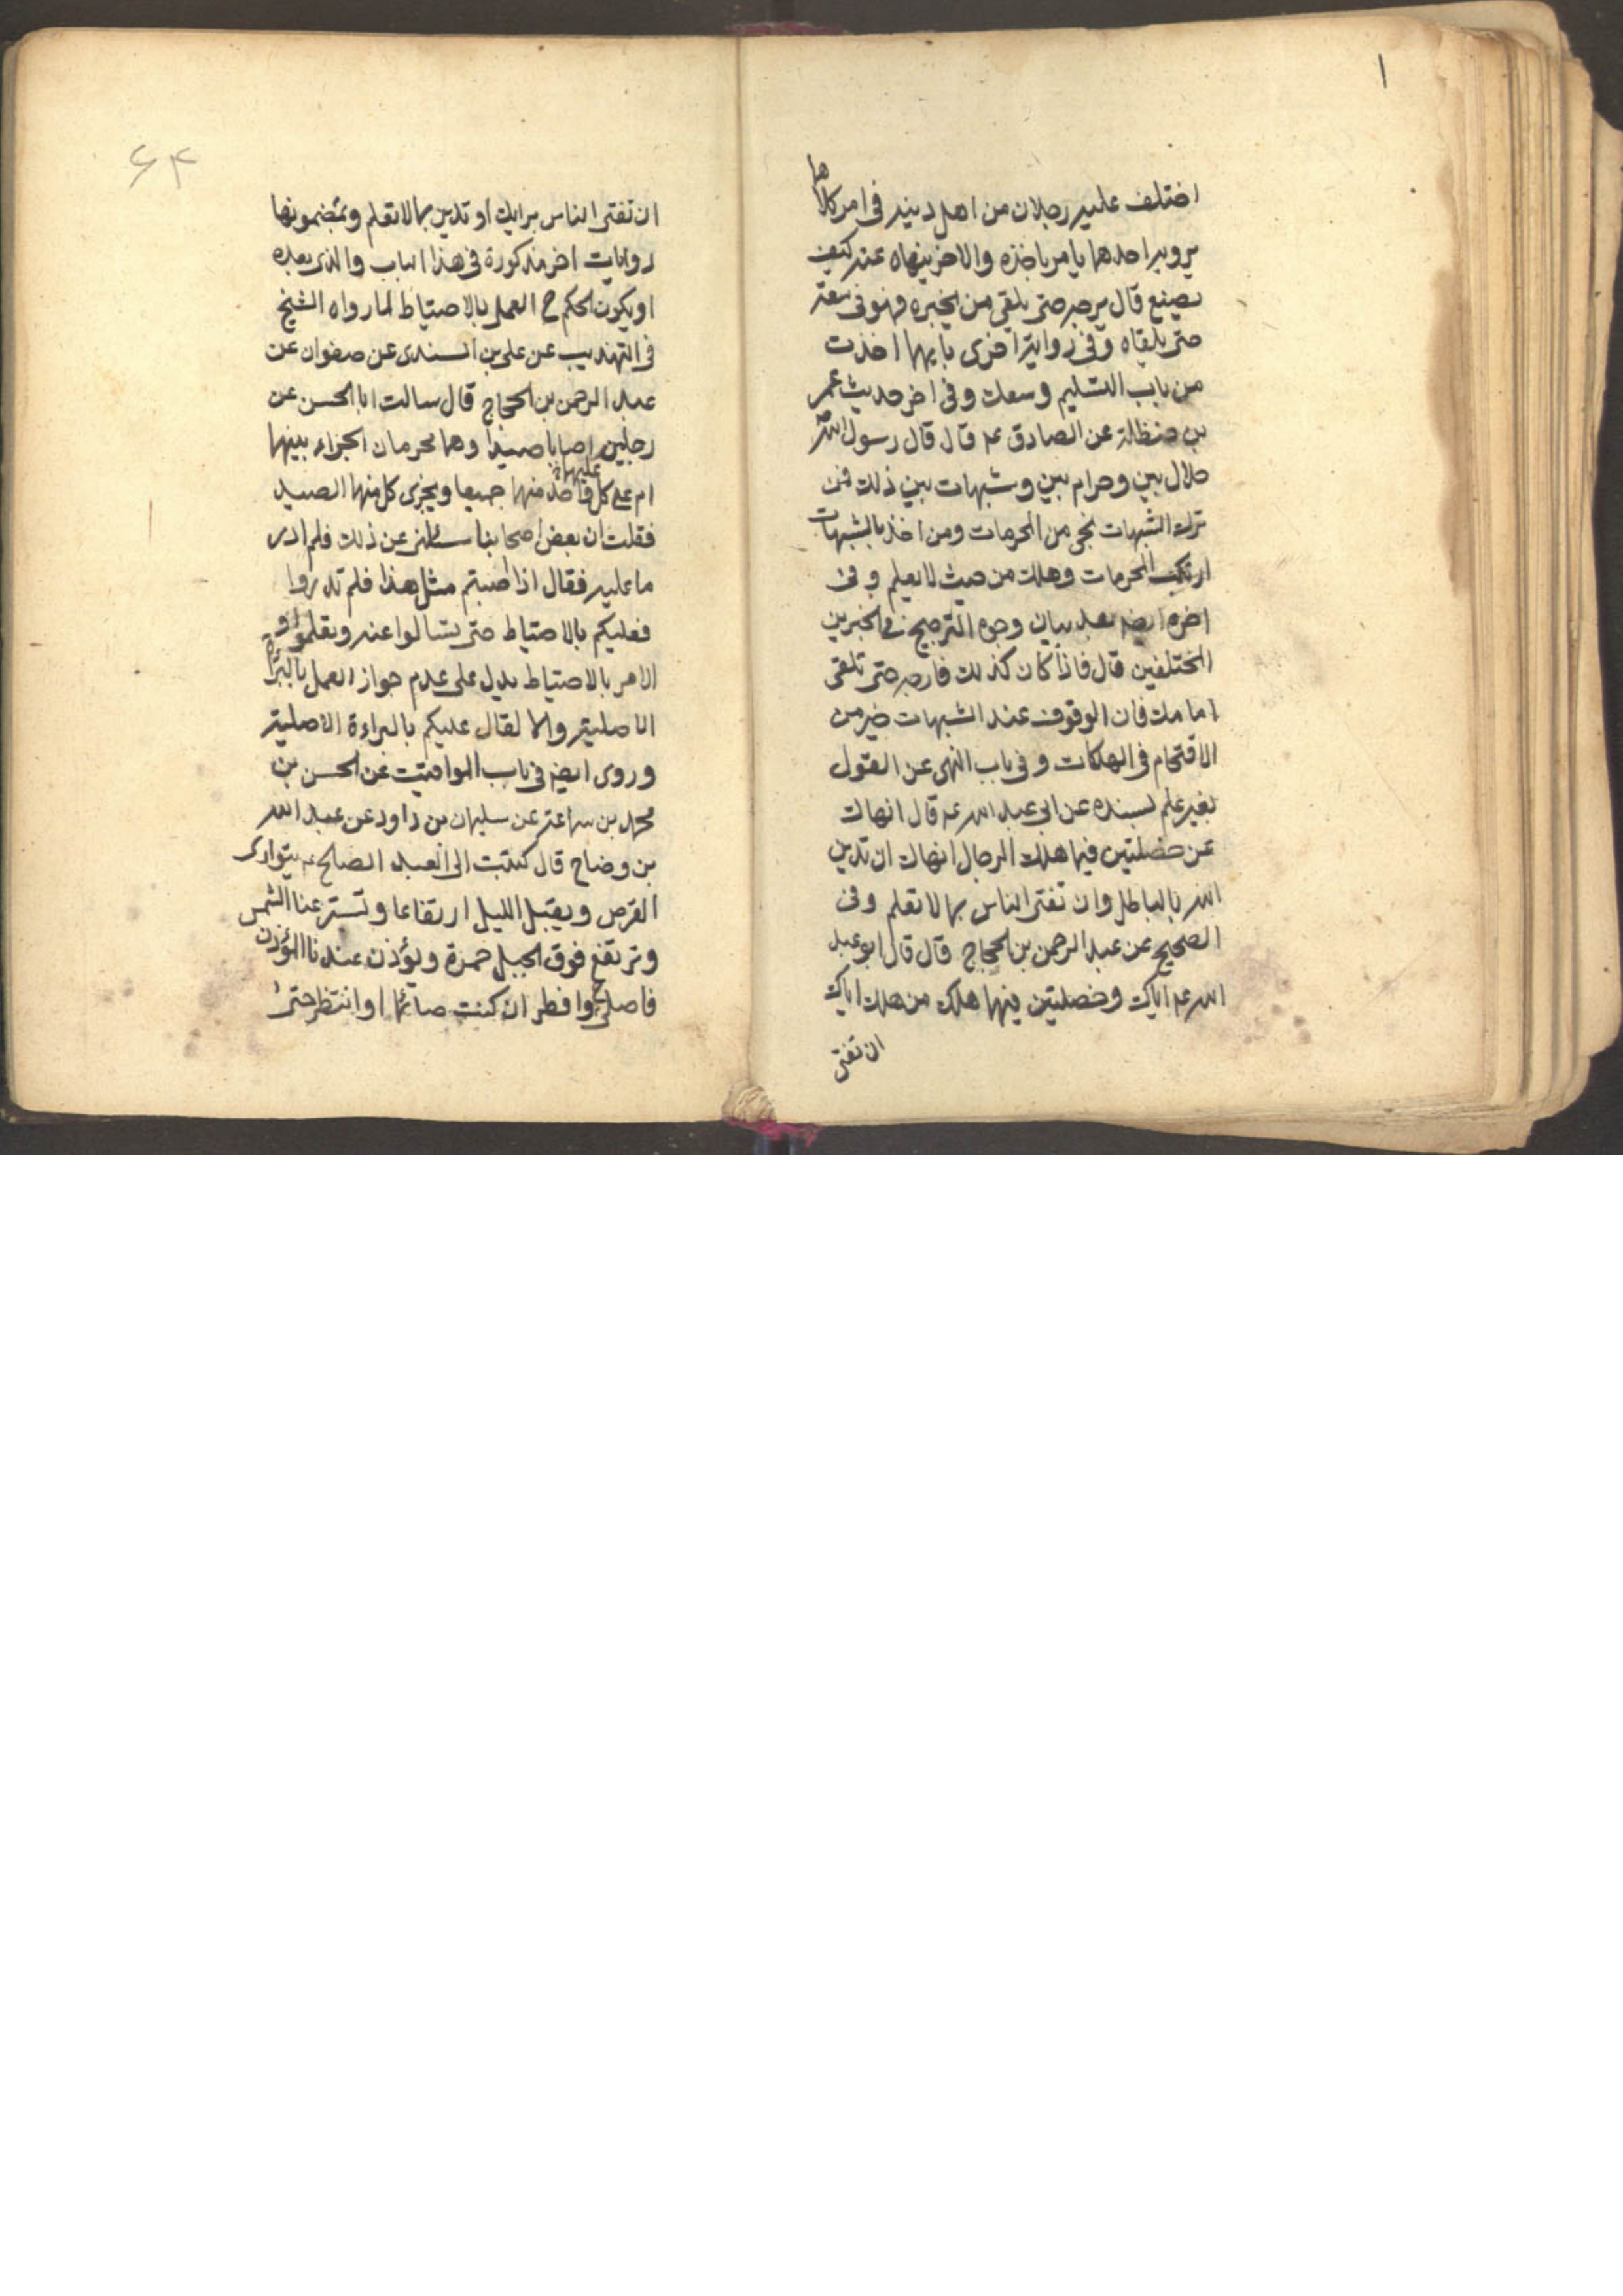 ١
اختلف عليه رجلان من اهل دينه فى امر كلاهما
يرويه احدهما يامر باخذه والاخر ينهاه عنه كيف
يصنع قال يرجه حتى يلقى من يخبره فهو فى سعة
حتى يلقاه وفى رواية اخرى بايهما اخذت
من باب التسليم وسعك وفى اخر حديث عمر
بن حنظلة عن الصادق عم قال قال رسول الله ص
حلال بين وحرام بين وشبهات بين ذلك فمن
ترك الشبهات نجى من المحرمات ومن اخذ بالشبهات
ارتكب المحرمات وهلك من حيث لا يعلم وفى
اخره ايضا بعد بيان وجوه الترجيح فى الخبرين
المختلفين قال فاذا كان كذلك فارجه حتى تلقى
امامك فان الوقوف عند الشبهات خير من
الاقتحام فى الهلكات وفى باب النهى عن القول
بغير علم بسنده عن ابى عبد الله عم قال انهاك
عن خصلتين فيهما هلك الرجال انهاك ان تدين
الله بالباطل وان تفتى الناس بما لا تعلم وفى
الصحيح عن عبد الرحمن بن الحجاج قال قال ابو عبد
الله عم اياك وخصلتين فيهما هلك من هلك اياك
ان تفتى
۶۴
ان تفتى الناس برايك او تدين بما لا تعلم وبمضمونها
روايات اخر مذكورة فى هذا الباب والذى بعده
او يكون الحكم ح العمل بالاحتياط لما رواه الشيخ
فى التهذيب عن على بن السندى عن صفوان عن
عبد الرحمن بن الحجاج قال سالت ابا الحسن عن
رجلين اصابا صيدا وهما محرمان الجزاء بينهما
ام على كل واحد منهما جميعا ويجزى كل منهما الصيد
عليهما
فقلت ان بعض اصحابنا سئلنى عن ذلك فلم ادر
ما عليه فقال اذا اصبتم مثل هذا فلم تدروا
فعليكم بالاحتياط حتى تسالوا عنه وتعلموا و
الامر بالاحتياط يدل على عدم جواز العمل بالبراة
الاصلية والا لقال عليكم بالبراءة الاصلية
وروى ايضا فى باب المواقيت عن الحسن بن
محمد بن سماعة عن سليمان بن داود عن عبد الله
بن وضاح قال كتبت الى العبد الصالح عم يتوارى
القرص ويقبل الليل ارتفاعا وتستر عنا الشمس
وترتفع فوق الجبل حمرة ويؤذن عندنا المؤذن
فاصلى ح وافطر ان كنت صائما او انتظر حتى